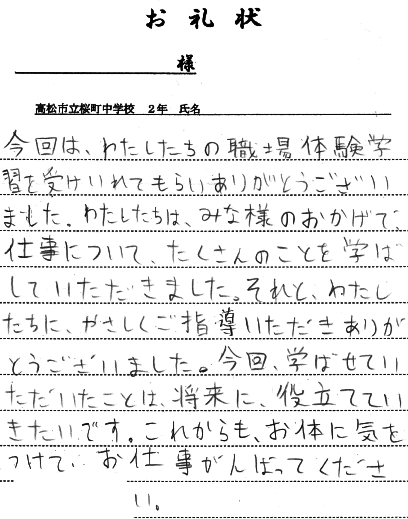 お礼状
様
高松市立桜町中学校　２年　氏名
今回は、わたしたちの職場体験学
習を受けいれてもらいありがとうござい
ました。わたしたちは、みな様のおかげで、
仕事について、たくさんのことを学ば
していただきました。それと、わたし
たちに、やさしくご指導いただきありが
とうございました。今回、学ばせてい
ただいたことは、将来に、役立ててい
きたいです。これからも、お体に気を
つけて、お仕事がんばってくださ
い。